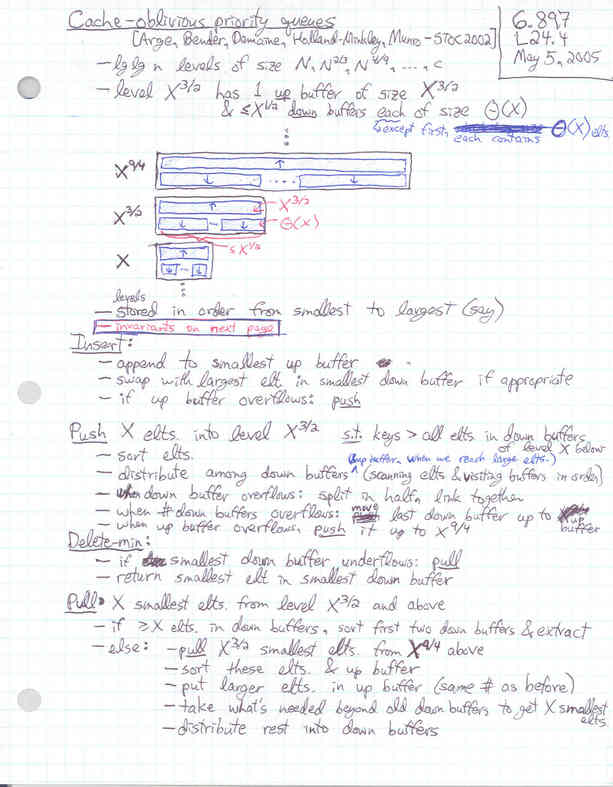 Cache-oblivious priority queues
6.897
[Arge, Bender, Demaine, Holland-Minkley, Munro - STOC 2002]
L24.4
May 5, 2005
- lg lg n levels of size N, N^2/3, N^4/9, ..., c
- level X^3/2 has 1 up buffer of size X^3/2
& ≤X^1/2 down buffers each of size Θ(X)
↳ except first, Θ(X) elts.
each contains
X^9/4
↑
↓ .... ↓
X^3/2
↑
X^3/2
↓ - ↓
Θ(X)
≤X^1/2
X
↑
↓ - ↓
levels
- stored in order from smallest to largest (say)
- invariants on next page
Insert:
- append to smallest up buffer
- swap with largest elt. in smallest down buffer if appropriate
- if up buffer overflows: push
Push X elts. into level X^3/2 s.t. keys > all elts. in down buffers
of level X below
- sort elts.
(up buffer, when we reach large elts.)
- distribute among down buffers ^ (scanning elts & visiting buffers in order)
- when down buffer overflows: split in half, link together
- when # down buffers overflows: move last down buffer up to up
buffer
- when up buffer overflows, push it up to X^9/4
Delete-min:
- if smallest down buffer underflows: pull
- return smallest elt in smallest down buffer
Pull X smallest elts. from level X^3/2 and above
- if ≥X elts. in down buffers, sort first two down buffers & extract
- else: - pull X^3/2 smallest elts. from X^9/4 above
- sort these elts. & up buffer
- put larger elts. in up buffer (same # as before)
- take what's needed beyond old down buffers to get X smallest
elts.
- distribute rest into down buffers